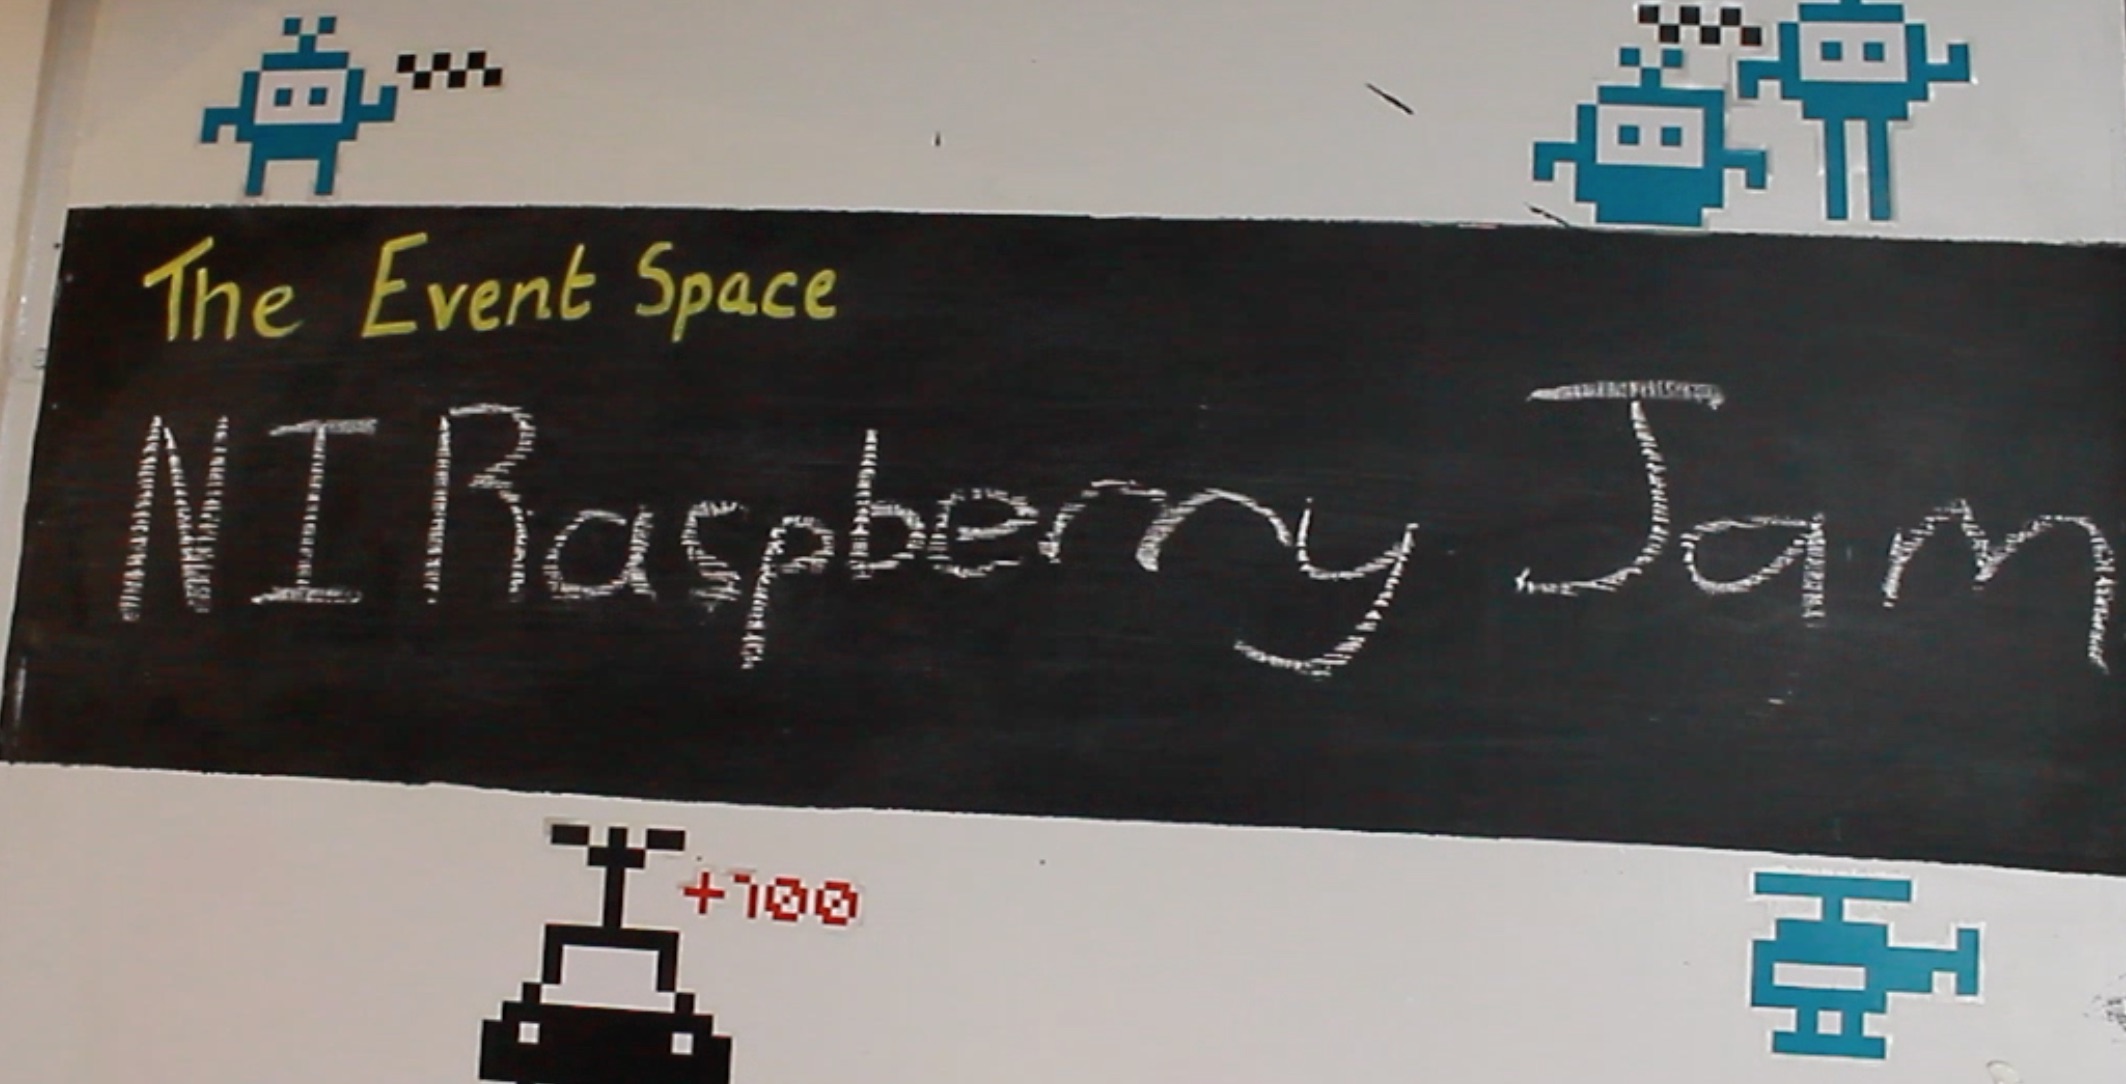 The Event Space
NI Raspberry Jam
+100